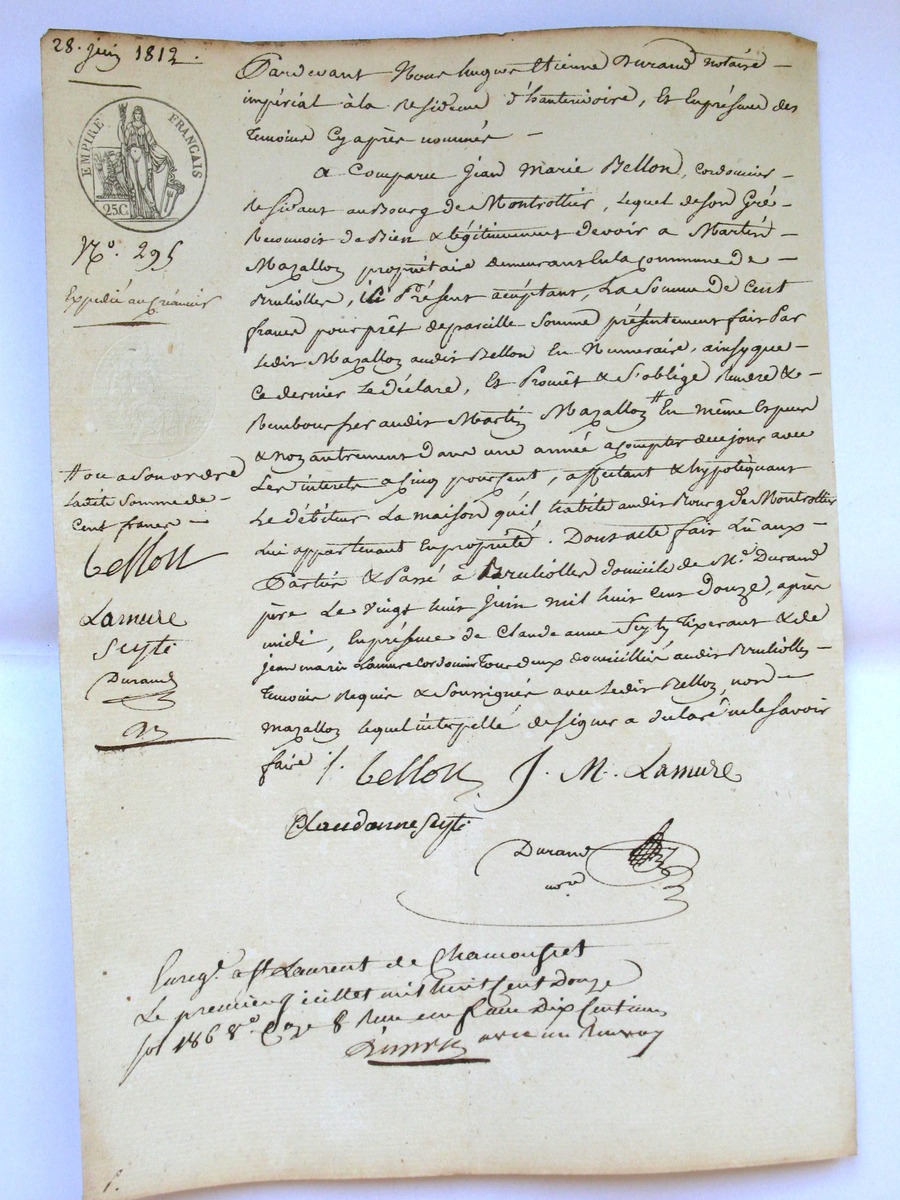 28. juin 1812.
EMPIRE FRANÇAIS
25 C.
N.º 295
Expedié au créancier
Pardevant Nous hugues Etienne Durand notaire
impérial à la residence d'hauterivoire, et En présence des
temoins Cy après nommés
a Comparu Jean Marie Bellon, Cordonnier
residant au Bourg de Montrottier, lequel de son Gré
Reconnois de Bien & légitimement devoir a Martin
Mazallon propriétaire demeurant En la commune de
Brulioles, ici Présent acceptant, La Somme de Cent
francs pour prêt de pareille Somme présentement fait Par
ledit Mazallon audit Bellon En Numeraire, ainsy que
Ce dernier Le déclare, Et Promêt & s'oblige Rendre &
Rembourser audit Martin Mazallon # En même Espece
& non autrement dans une année a compter de ce jour avec
Les interets a Cinq pour Cent, affectant & hypotèquant
Le débiteur La maison qu'il habite audit Bourg de Montrottier
Lui appartenant En propriété. Dont acte fait Lû aux
Parties & Passé à Brulioles domicile de Mr. Durand
père Le Vingt huit Juin mil huit Cent Douze, après
midi, En présence de Claude anne Scyty Tixerant & de
jean marie Lamure Cordonnier Tous deux domiciliés audit Brulioles
temoins Requis & Soussignés avec Ledit Bellon, non
mazallon lequel interpellé de signer a declaré ne le Savoir
faire /.
# ou a Son ordre
Ladite Somme de
Cent francs
bellon
Lamure
Scyté
Durand
bellon J. M. Lamure
Claudanne Scyté
Durand
nore
Enregé. a St Laurent de Chamousset
Le premier juillet mil huit Cent Douze
fol 186 Vo. Caze 8 Reçu un franc Dix Centimes
avec un Renvoy